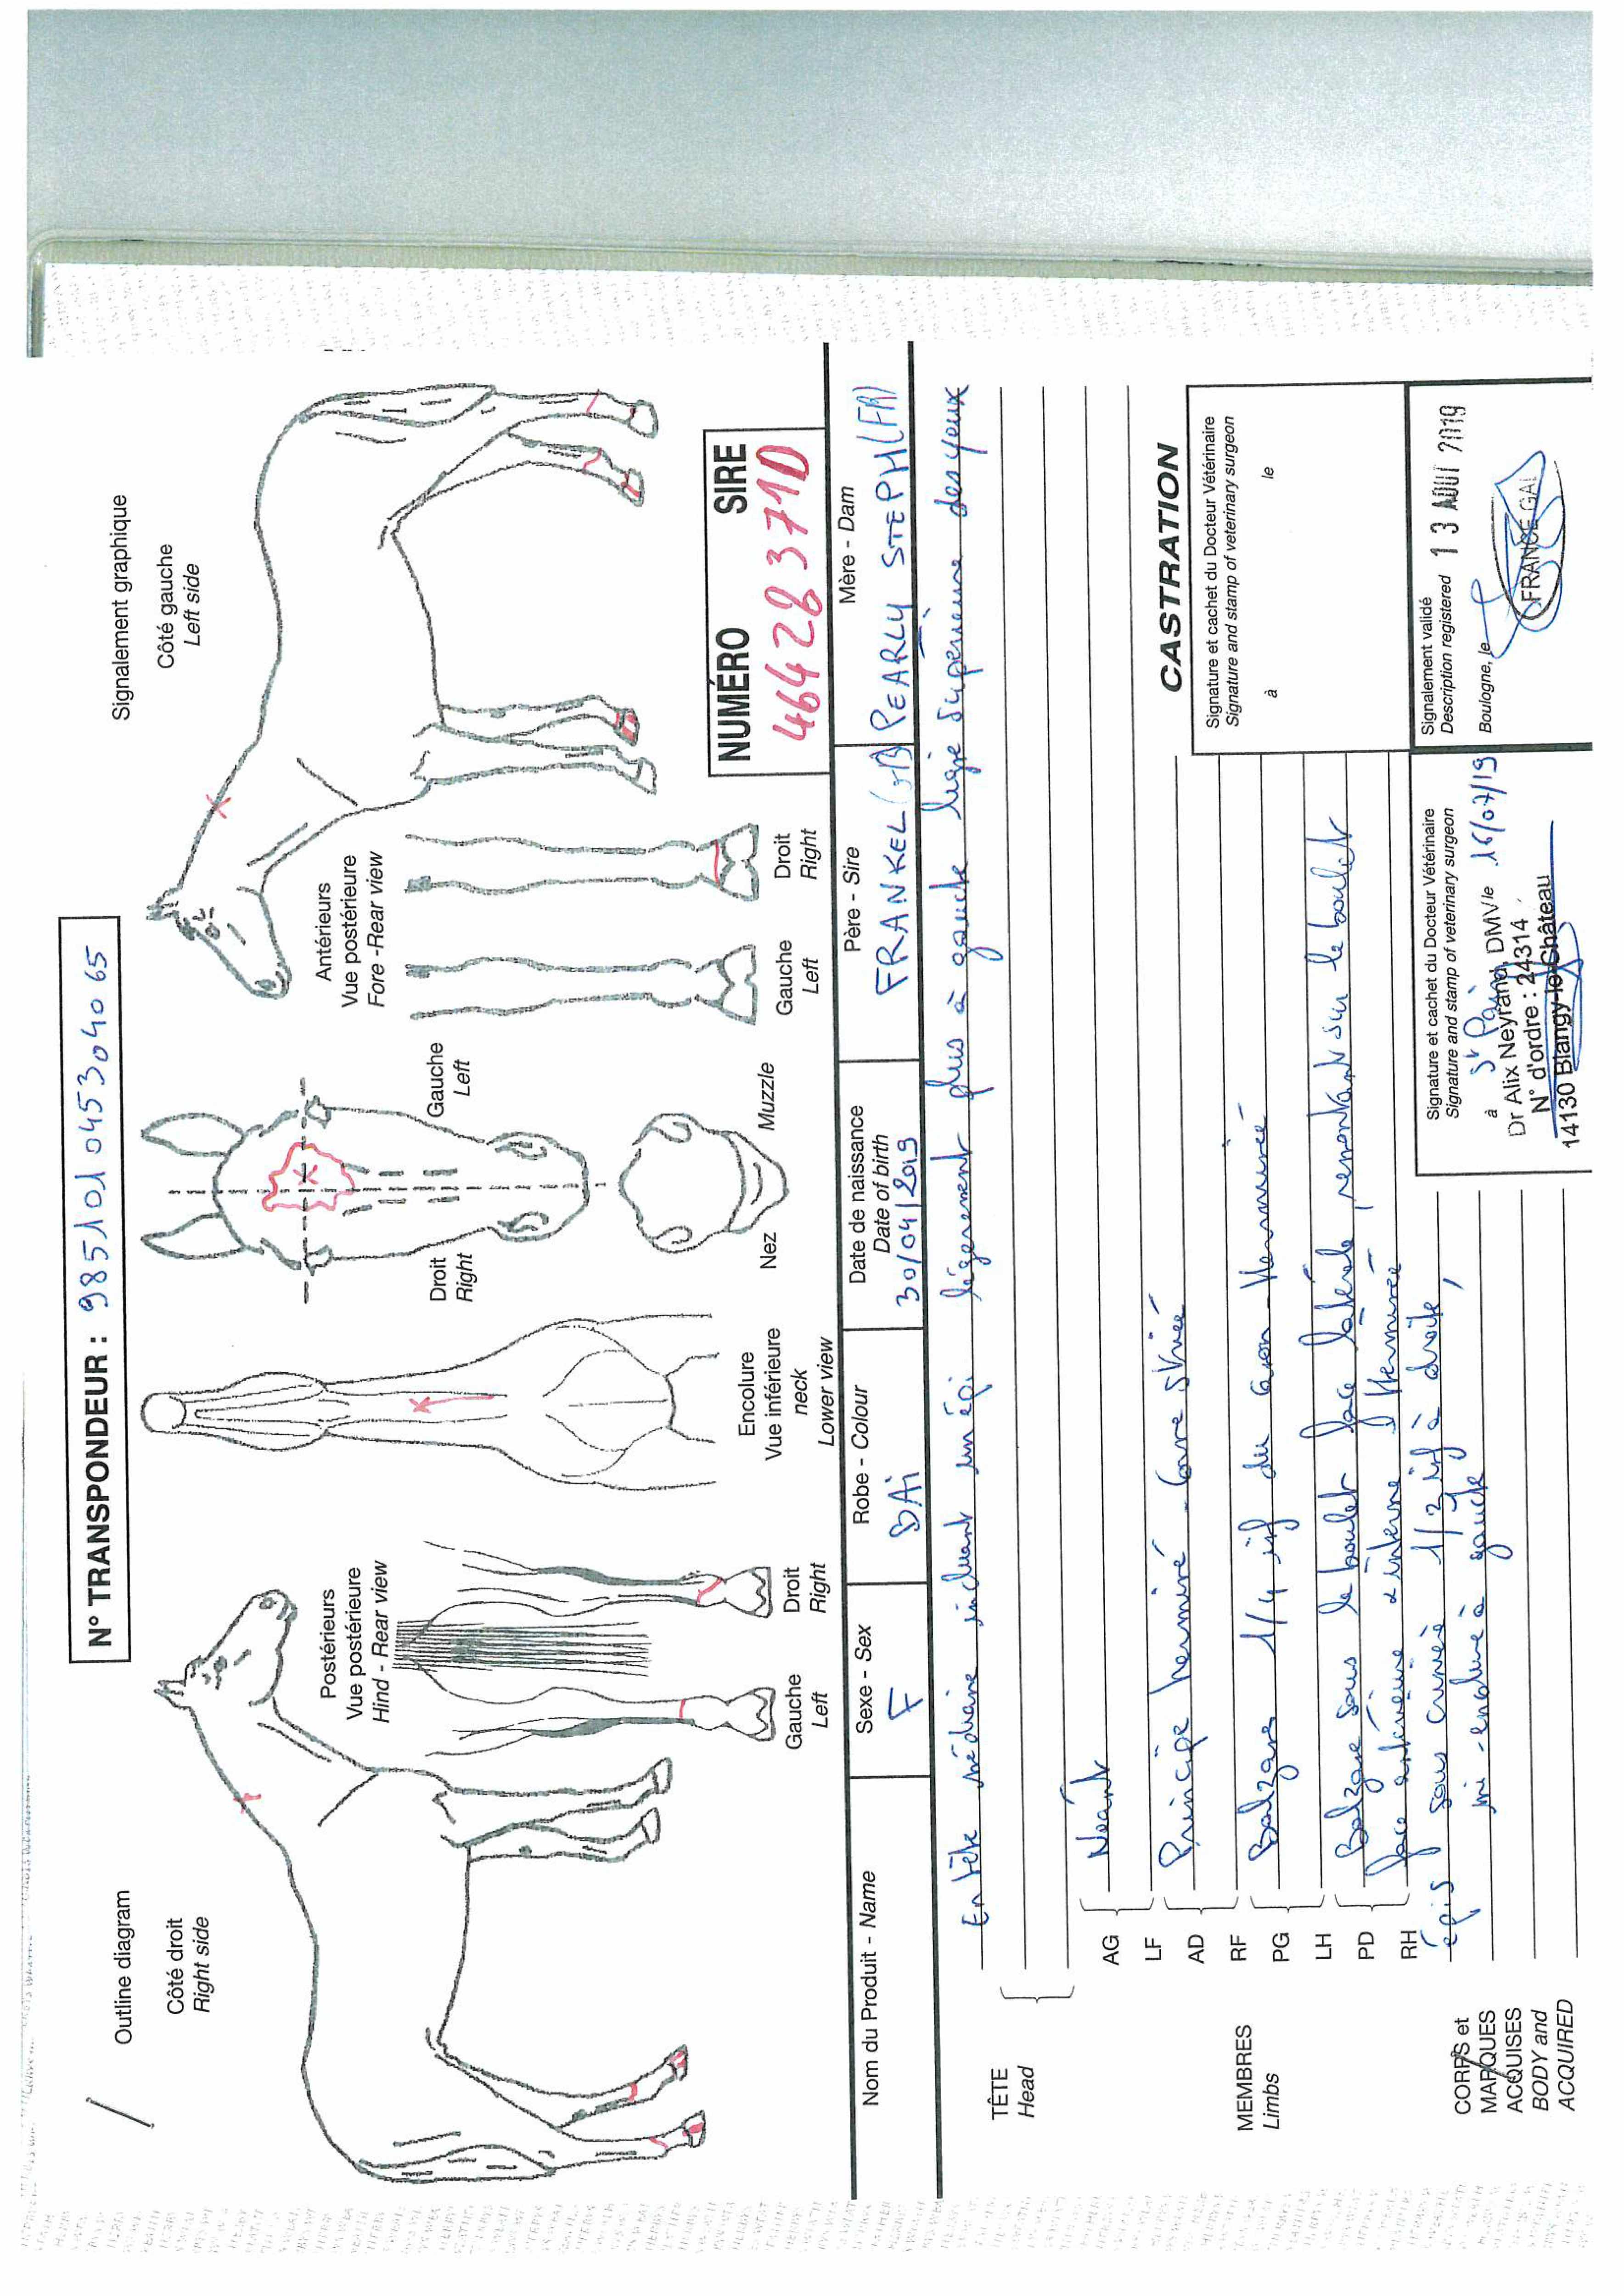 N° TRANSPONDEUR : 985101045304065
Outline diagram
Signalement graphique
Côté droit
Right side
Côté gauche
Left side
Postérieurs
Vue postérieure
Hind - Rear view
Gauche
Left
Droit
Right
Encolure
Vue inférieure
neck
Lower view
Droit
Right
Gauche
Left
Nez
Muzzle
Antérieurs
Vue postérieure
Fore - Rear view
Gauche
Left
Droit
Right
NUMÉRO SIRE
46428371D
Nom du Produit - Name
Sexe - Sex
F
Robe - Colour
BAi
Date de naissance
Date of birth
30/04/2019
Père - Sire
FRANKEL (GB)
Mère - Dam
PEARLY STEPH (FR)
TÊTE
Head
En tête médiane incluant un épi légèrement plus à gauche ligne supérieure des yeux
MEMBRES
Limbs
AG
LF
Néant
AD
RF
Principe herminé - Corne striée
PG
LH
Balzane 1/4 inf du canon - Herminée
PD
RH
Balzane sous le boulet face latérale, remontant sur le boulet
face antérieure & interne, Herminée
CORPS et
MARQUES
ACQUISES
BODY and
ACQUIRED
épis sous crinière 1/3 inf à droite,
mi-encolure à gauche
CASTRATION
Signature et cachet du Docteur Vétérinaire
Signature and stamp of veterinary surgeon
à le
Signature et cachet du Docteur Vétérinaire
Signature and stamp of veterinary surgeon
à St Pair le 16/07/19
Dr Alix Neyrand, DMV
N° d'ordre : 24314
14130 Blangy-le-Château
Signalement validé
Description registered
13 AOUT 2019
Boulogne, le
FRANCE GAL